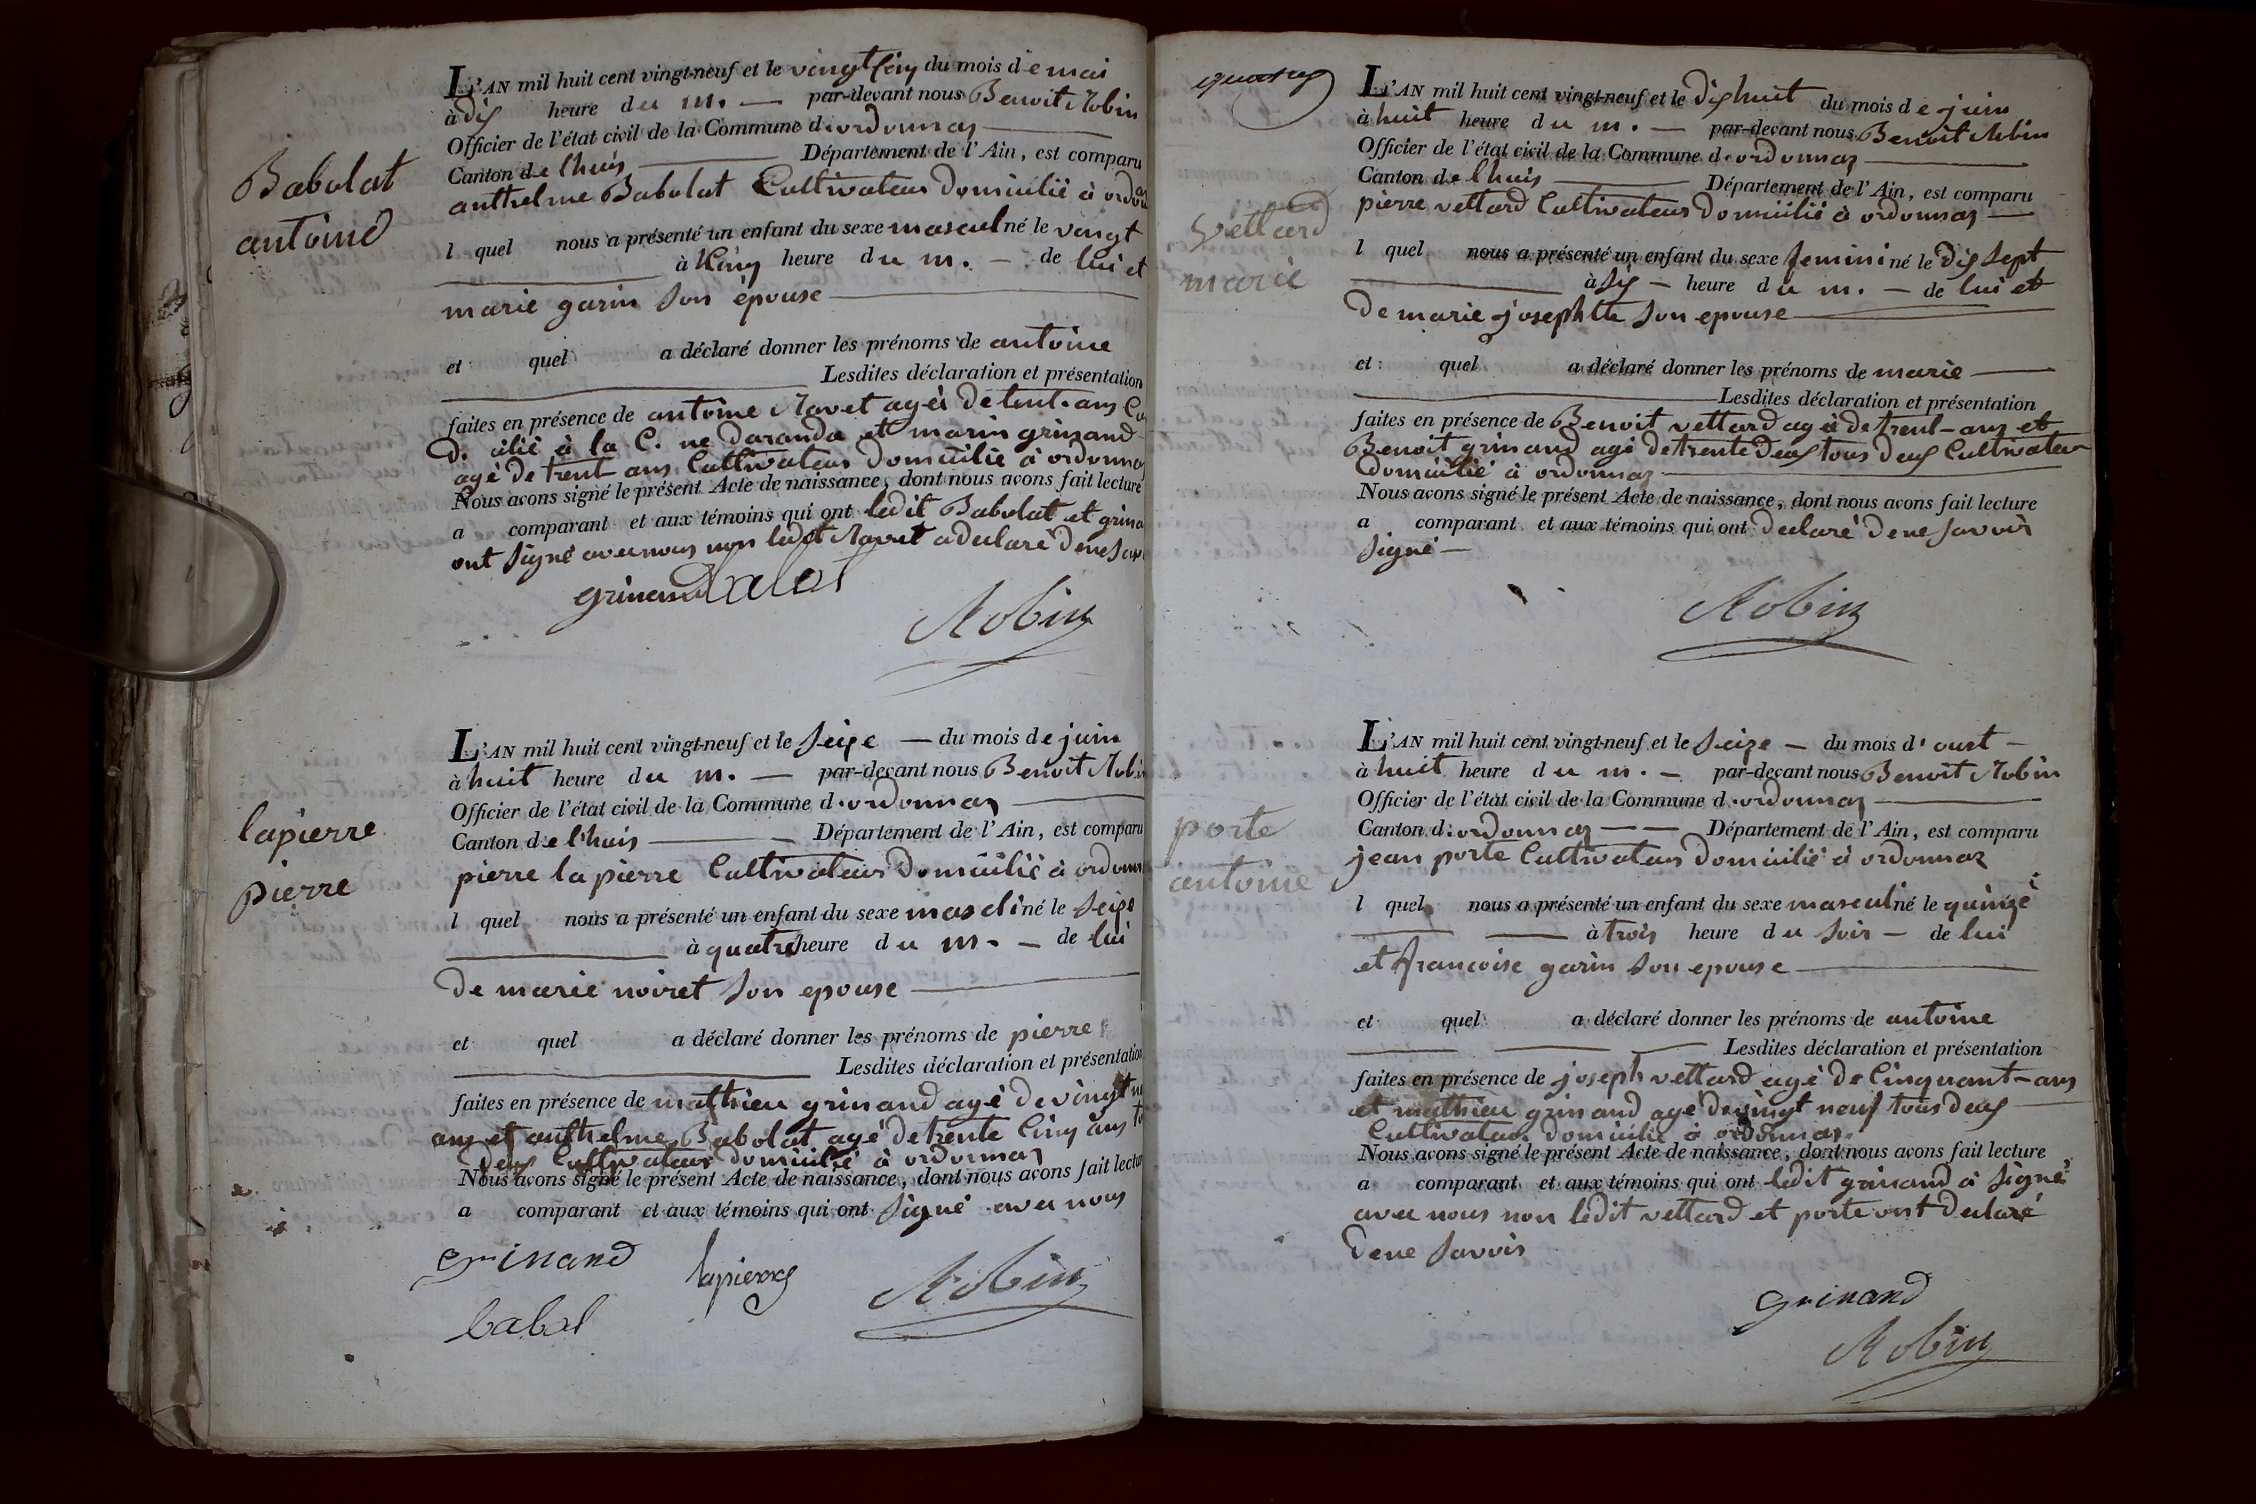 Babolat
antoine
L'AN mil huit cent vingt-neuf et le vingt cinq du mois de mai
à dix heure du m. — par-devant nous Benoit Robin
Officier de l'état civil de la Commune d. ordonnaz
Canton de lhuis — Département de l'Ain, est comparu
anthelme Babolat Cultivateur domicilié à
l quel nous a présenté un enfant du sexe masculné le vingt
à heure du m. — de lui et
marie garin son épouse
et quel a déclaré donner les prénoms de antoine
Lesdites déclaration et présentation
faites en présence de antoine Ravet agés de trent. ans
à la C. ne daranda et marin grinand
agé de trent ans Cultivateur domicilié à
Nous avons signé le présent Acte de naissance, dont nous avons fait lecture
a comparant et aux témoins qui ont ledit Babolat et
ont signé avec nous non ledit Ravet a declaré de ne
grinand babol
Robin
lapierre
pierre
L'AN mil huit cent vingt-neuf et le seize — du mois de juin
à huit heure du m. — par-devant nous Benoit
Officier de l'état civil de la Commune d. ordonnaz
Canton de l'huis — Département de l'Ain, est comparu
pierre la pierre Cultivateur domicilié à
l quel nous a présenté un enfant du sexe masclné le seize
à quatre heure du m. — de lui
de marie noiret son epouse
et quel a déclaré donner les prénoms de pierre
Lesdites déclaration et présentation
faites en présence de mathieu grinand agé de vingt
ans et anthelme Babolat agé de trente cinq ans
deux Cultivateur domicilié à ordonnaz
Nous avons signé le présent Acte de naissance, dont nous avons fait
a comparant et aux témoins qui ont signé avec nous
grinand
lapierre
Robin
babol
vettard
marie
L'AN mil huit cent vingt-neuf et le dixhuit du mois de juin
à huit heure du m. — par-devant nous Benoit Robin
Officier de l'état civil de la Commune d. ordonnaz
Canton de lhuis — Département de l'Ain, est comparu
pierre vettard Cultivateur domicilié à ordonnaz —
l quel nous a présenté un enfant du sexe feminin né le dix sept
à six — heure du m. — de lui et
de marie josephtte son epouse
et quel a déclaré donner les prénoms de marie —
Lesdites déclaration et présentation
faites en présence de Benoit vettard agé de trent-ans et
Benoit grinand agé de trente deux tous deux Cultivateur
domicilié à ordonnaz
Nous avons signé le présent Acte de naissance, dont nous avons fait lecture
a comparant et aux témoins qui ont declaré de ne savoir
signé —
Robin
porte
antoine
L'AN mil huit cent vingt-neuf et le seize — du mois d'oust —
à huit heure du m. — par-devant nous Benoit Robin
Officier de l'état civil de la Commune d. ordonnaz
Canton d: ordonnaz — — Département de l'Ain, est comparu
jean porte Cultivateur domicilié à ordonnaz
l quel nous a présenté un enfant du sexe masculné le quinze
à trois heure du soir — de lui
et francoise garin son epouse
et quel a déclaré donner les prénoms de antoine
Lesdites déclaration et présentation
faites en présence de joseph vettard agé de Cinquant-ans
et mathieu grinand agé de vingt neuf tous deux
Cultivateur domicilié à ordonnaz
Nous avons signé le présent Acte de naissance, dont nous avons fait lecture
a comparant et aux témoins qui ont ledit grinand à signé
avec nous non ledit vettard et porte ont declaré
de ne savoir
grinand
Robin